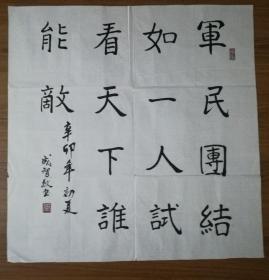 軍民團結
如一人試
看天下誰
能敵
辛卯年初夏
成智敏書